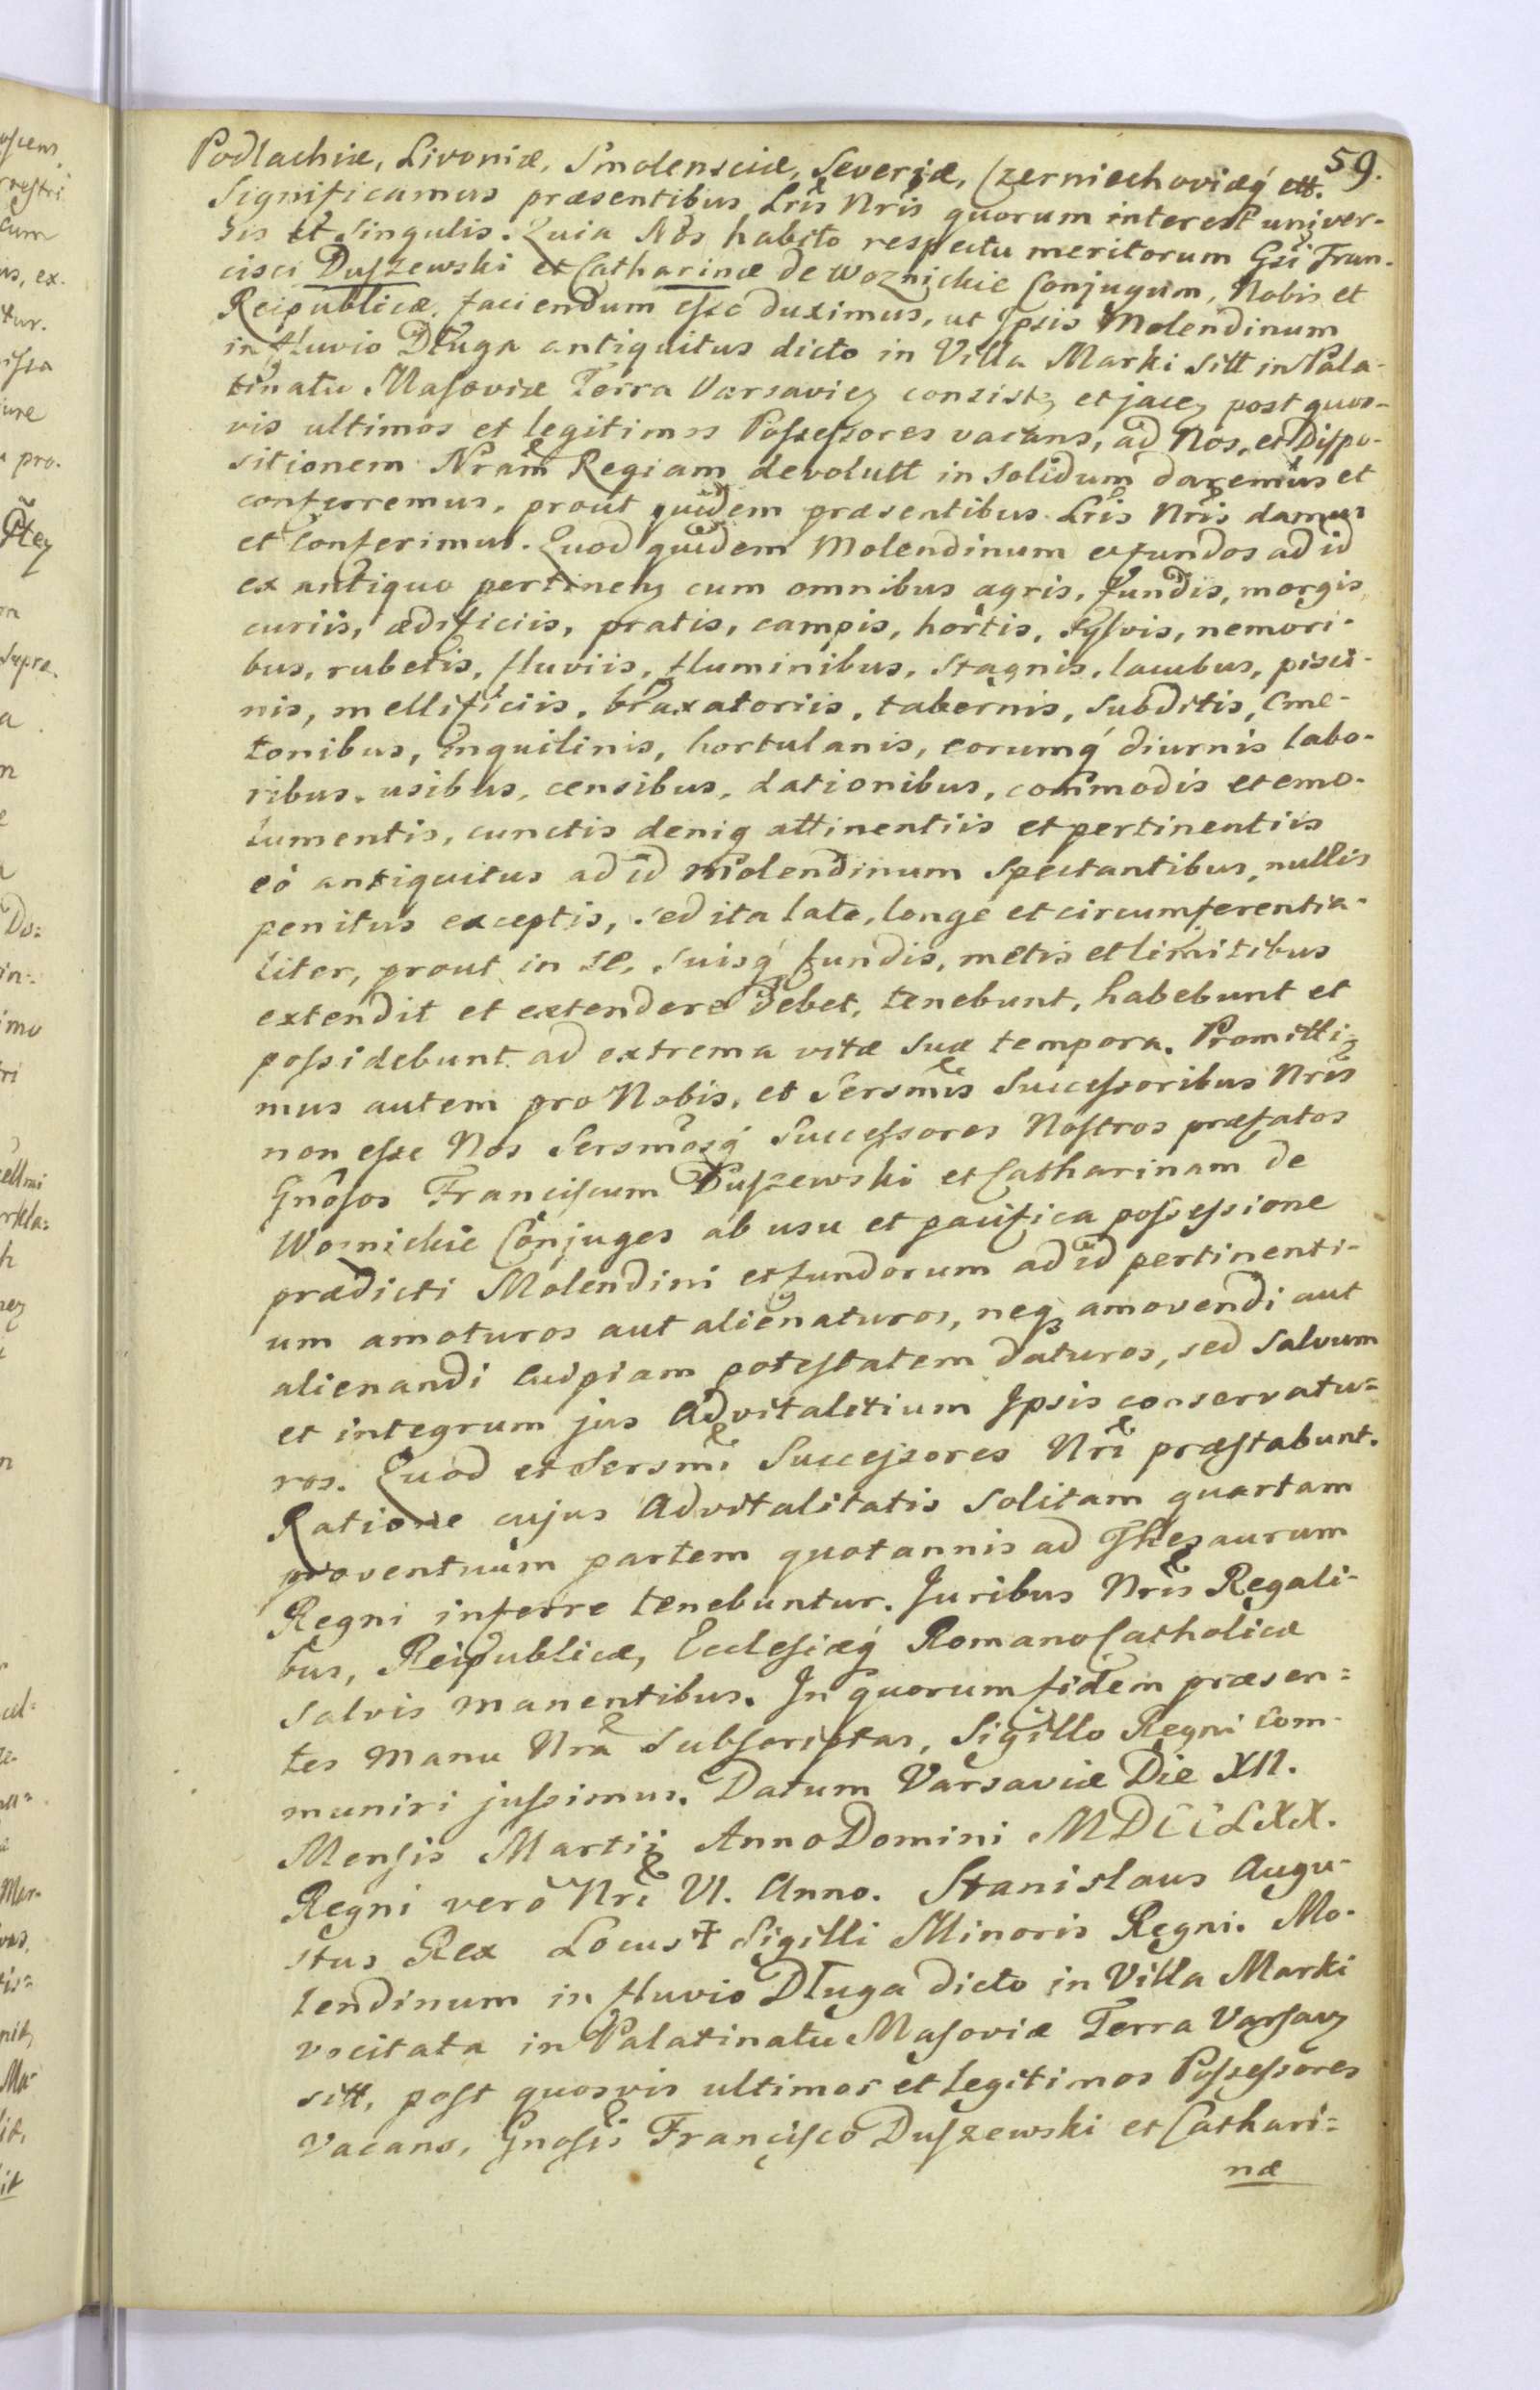 59.
Podlachiæ, Livoniæ, Smolensciæ, Severiæ, Czerniechoviæq́ ett.
Significamus præsentibus Lris Nris quorum interest univer-
sis et Singulis. Quia Nos habito respectu meritorum Gsi Fran-
cisci Duszewski et Catharinæ de Woznickie Conjugum, Nobis et
Reipublicæ, faciendum esse duximus, ut Ipsis Molendinum
in fluvio Długa antiquitus dicto in Villa Marki sitt in Pala-
tinatu Masoviæ Terra Varsavien consisten et jacen post quos-
vis ultimos et legitimos Possessores vacans, ad Nos, et Dispo-
sitionem Nram Regiam devolutt in solidum daremus et
conferremus, prout quidem præsentibus Lris Nris damus
et Conferimus. Quod quidem Molendinum et fundos ad id
ex antiquo pertinen cum omnibus agris, fundis, morgis
curiis, ædificiis, pratis, campis, hortis, Sylvis, nemori-
bus, rubetis, fluviis, fluminibus, Stagnis, lacubus, pisci-
nis, mellificiis, braxatoriis, tabernis, Subditis, Cme-
tonibus, Inquilinis, hortulanis, eorumq́ diurnis labo-
ribus, usibus, censibus, dationibus, commodis et emo-
lumentis, cunctis deniq attinentiis et pertinentiis
eó antiquitus ad id Molendinum Spectantibus, nullis
penitus exceptis, sed ita late, longe et circumferentia-
liter, prout in se, suisq́ fundis, metis et limitibus
extendit et extendere debet, tenebunt, habebunt et
possidebunt ad extrema vitæ suæ tempora. Promitti-
mus autem pro Nobis, et Sersmis Successoribus Nris
non esse Nos Sersmosq́ Successores Nostros præfatos
Gnosos Franciscum Duszewski et Catharinam de
Woznickie Conjuges ab usu et pacifica possessione
prædicti Molendini et fundorum ad id pertinenti-
um amoturos aut alienaturos, neq amovendi aut
alienandi Cuipiam potestatem daturos, sed Salvum
et integrum jus Advitalitium Ipsis conservatu=
ros. Quod et Sersmi Successores Nri præstabunt.
Ratione cujus Advitalitatis Solitam quartam
proventuum partem quotannis ad Thesaurum
Regni inferre tenebuntur. Juribus Nris Regali-
bus, Reipublicæ, Ecclesiæq́ Romano Catholicæ
Salvis manentibus. In quorum fidem præsen=
tes manu Nra Subscriptas, Sigillo Regni com-
muniri jussimus. Datum Varsaviæ Die XII.
Mensis Martii Anno Domini MDCCLXX.
Regni vero Nri VI. Anno. Stanislaus Augu-
stus Rex Locus † Sigilli Minoris Regni. Mo-
lendinum in fluvio Długa dicto in Villa Marki
vocitata in Palatinatu Masoviæ Terra Varsav
sitt, post quosvis ultimos et legitimos Possessores
Vacans, Gnosis Francisco Duszewski et Cathari=
næ